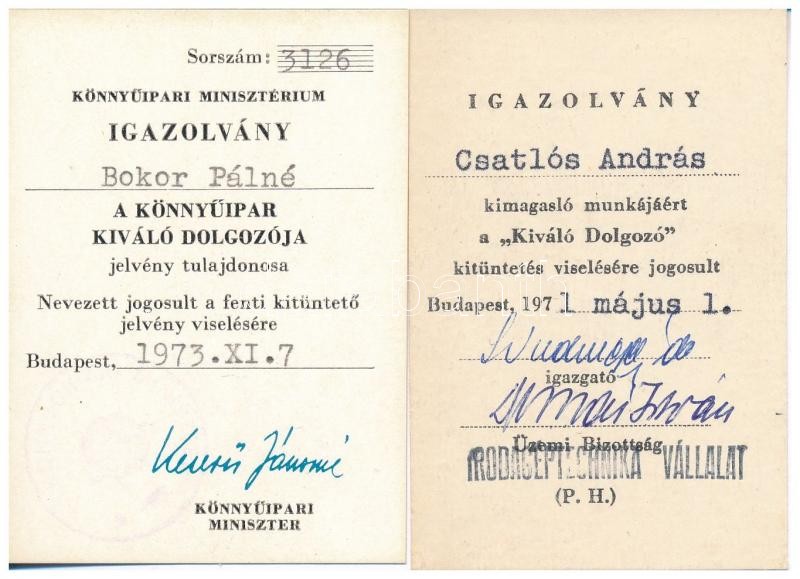 Sorszám: 3126
KÖNNYŰIPARI MINISZTÉRIUM
IGAZOLVÁNY
Bokor Pálné
A KÖNNYŰIPAR
KIVÁLÓ DOLGOZÓJA
jelvény tulajdonosa
Nevezett jogosult a fenti kitüntető
jelvény viselésére
Budapest, 1973.XI.7
Keserű Jánosné
KÖNNYŰIPARI
MINISZTER
IGAZOLVÁNY
Csatlós András
kimagasló munkájáért
a „Kiváló Dolgozó”
kitüntetés viselésére jogosult
Budapest, 1971 május 1.
igazgató
István
Üzemi Bizottság
IRODAGÉPTECHNIKA VÁLLALAT
(P. H.)